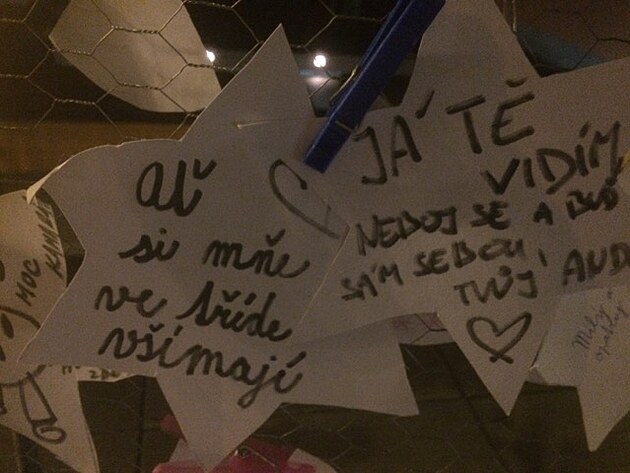 Ať
si mňe
ve tříde
všímají
JÁ TĚ
VIDÍM
NEBOJ SE A BUĎ
SÁM SEBOU,
TVŮJ AND
MOC